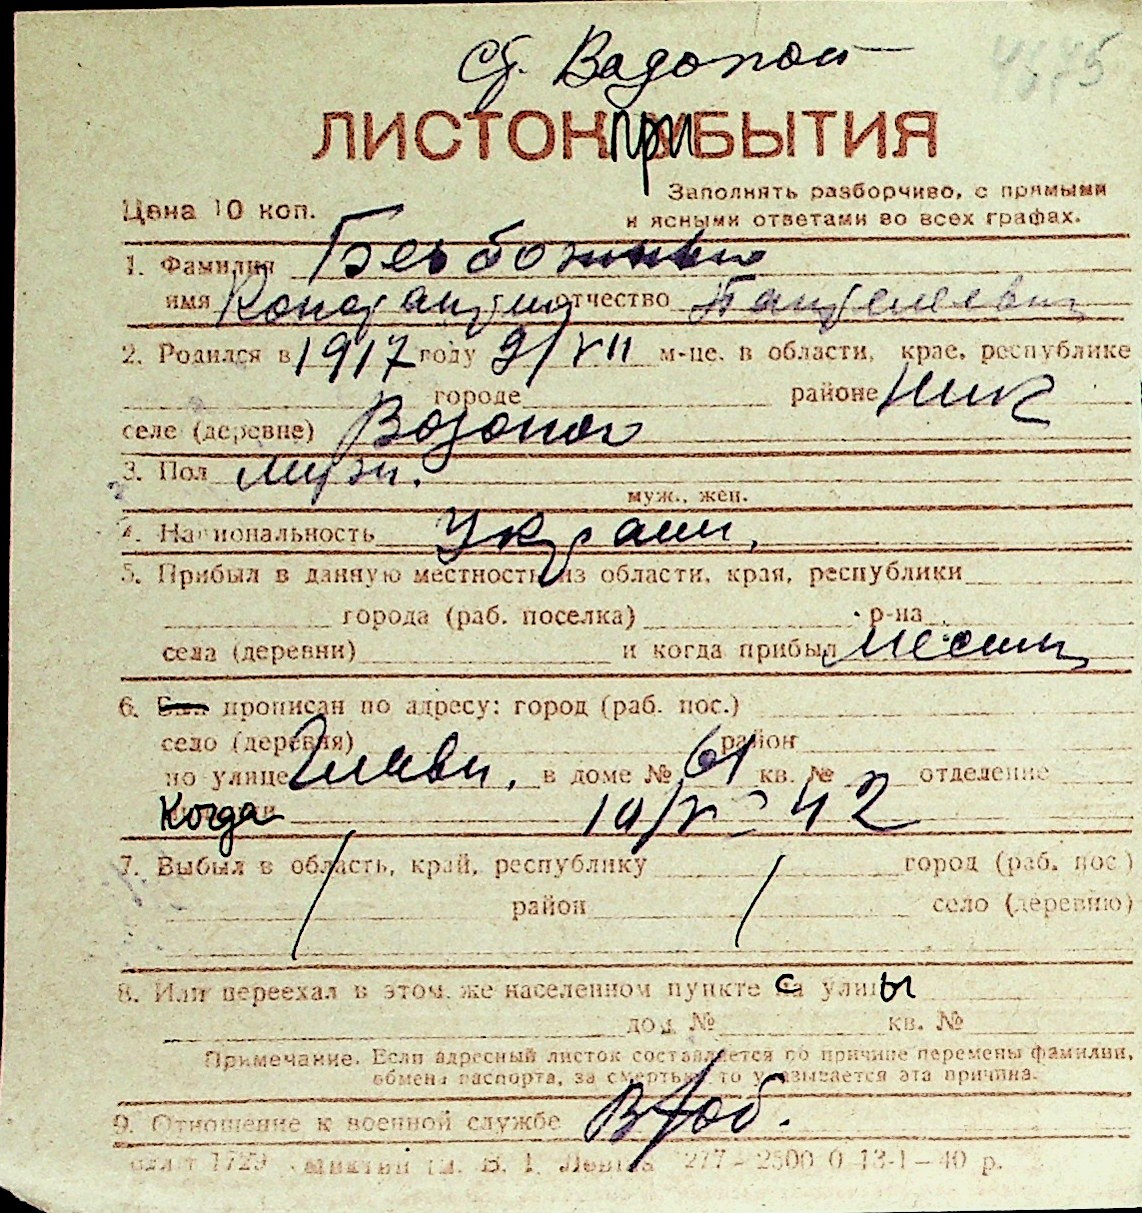 Ст. Водопой
ЛИСТОК ПРИБЫТИЯ
Заполнять разборчиво, с прямыми
Цена 10 коп.
и ясными ответами во всех графах.
1. Фамилия Безбожный
имя Константин отчество Пантелеевич
2. Родился в 1917 году 9/VII м-це, в области, крае, республике
городе районе Ник
селе (деревне) Водопой
3. Пол муж.
муж., жен.
4. Национальность Украин.
5. Прибыл в данную местность из области, края, республики
города (раб. поселка) р-на
села (деревни) и когда прибыл местн
6. прописан по адресу: город (раб. пос.)
село (деревня) район
по улице в доме № 61 кв. № отделение
когда 10/V - 42
7. Выбыл в область, край, республику город (раб. пос.)
район село (деревню)
8. Или переехал в этом же населенном пункте с улицы
дом № кв. №
Примечание. Если адресный листок составляется по причине перемены фамилии,
обмена паспорта, за смертью, то указывается эта причина.
9. Отношение к военной службе В/об.
1729 277 - 2500 0 13-1-40 р.